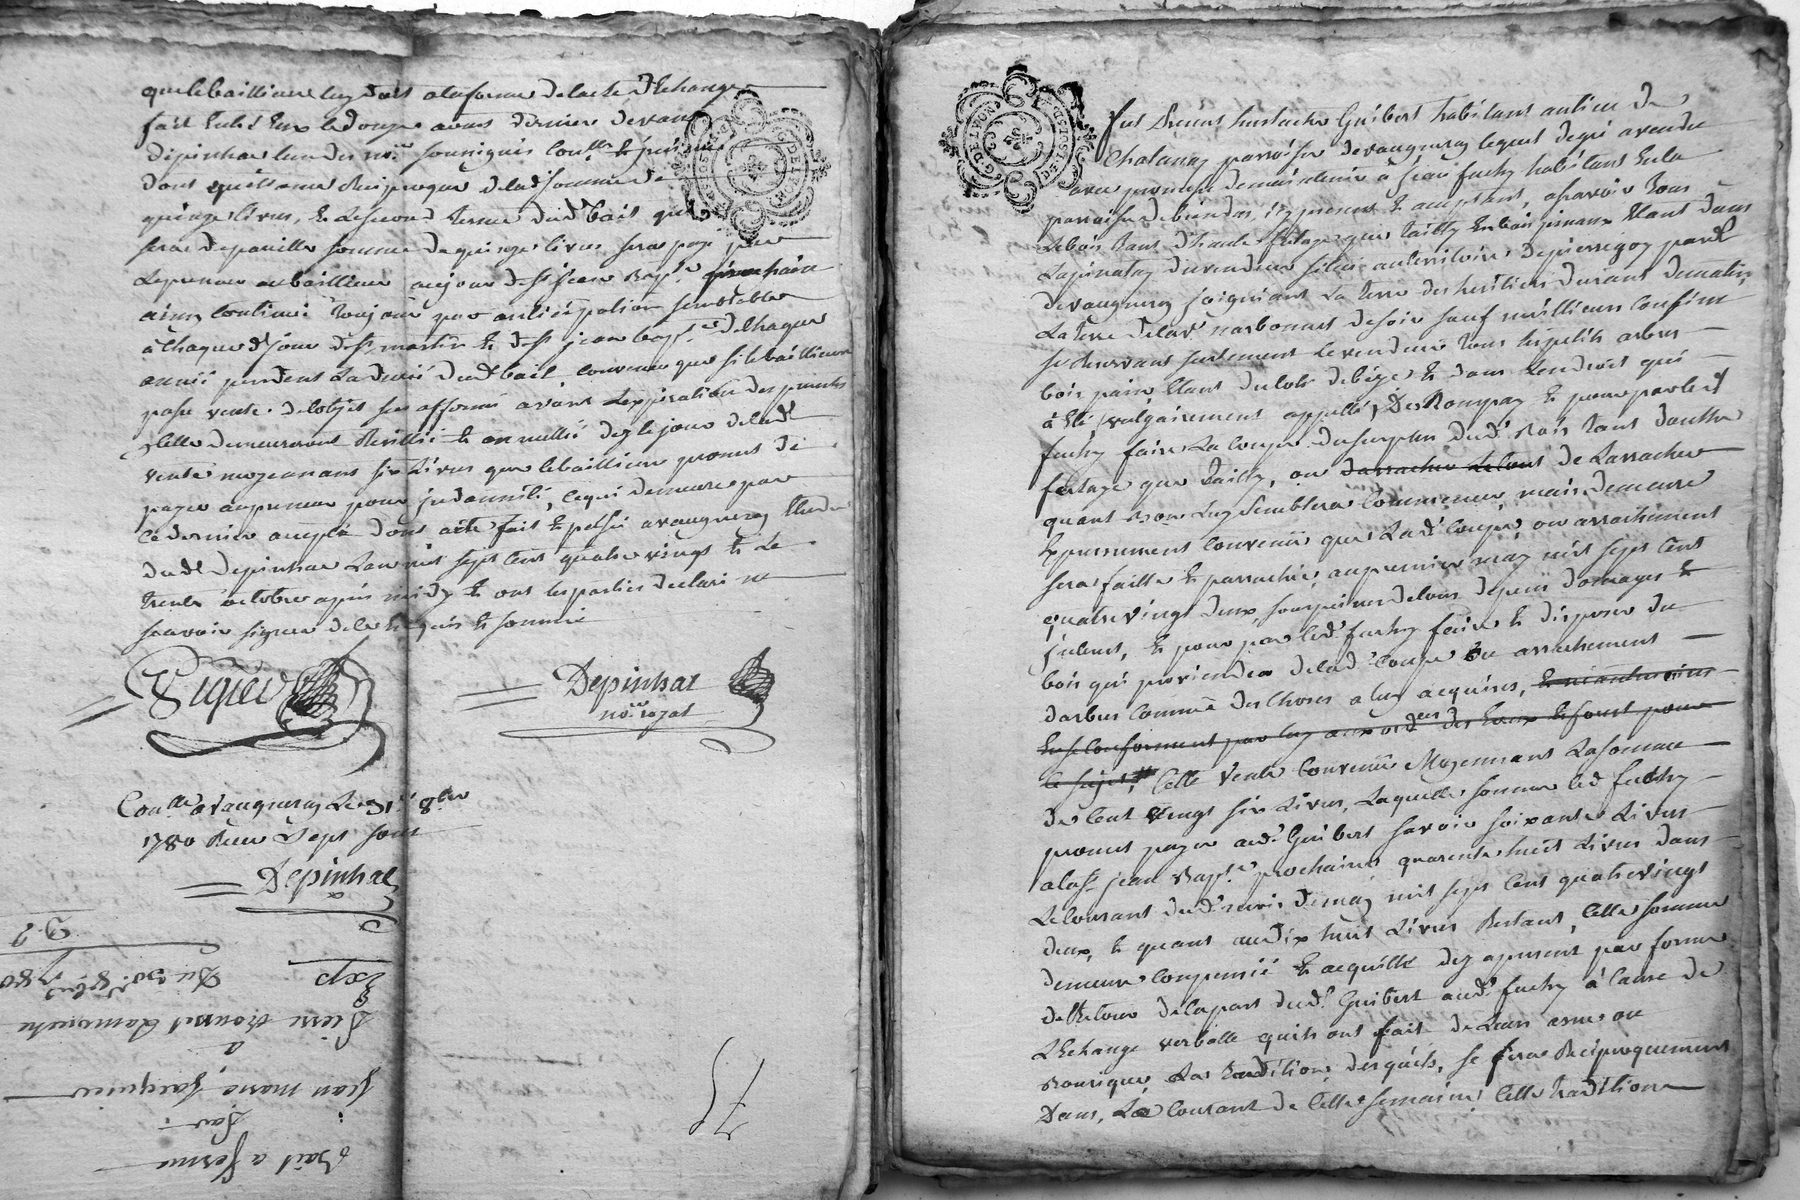 que le bailleur luy doit a la forme de lacte dEchange
fait Entre Eux le douze aoust dernier devant
depinhac lun des no.res soussignés Con.llé
dont quittance Reciproque de lad. somme de
quinze livres, Et le second terme dud. bail qui
sera de pareille somme de quinze livres sera payé par
Le preneur au bailleur au jour de St jean Bap.te prochain
ainsy continué toujours par anticipation semblable
à chaque jour de St martin Et de St jean bap.te de chaque
année pendant La durée dud. bail Convenu que si le bailleur
passe vente de lobjet sus affermé avant Lexpiration des presentes
Elle demeureront Resiliées Et annullées dez le jour de lad.
vente moyennant six Livres que le bailleur promet de
payer au preneur pour indamnité, ce qui demeure par
ce dernier accepté dont acte fait Et passé a vaugneray Etude
dud. Depinhac Lan mil sept cent quatre vingt Et Le
trente octobre après midy Et ont les parties declaré ne
sçavoir signer de ce Enquis Et sommés
Depinhac
no.re royal
Con.llé a vaugneray Le 31 8.bre
1780 Reçu Sept sous
Depinhac
fut Present Eustache Guibert habitant au lieu de
Chatanay parroisse de vaugneray lequel de gré a vendu
avec promesse de maintenir à jean fuchy habitant En la
parroisse de icy present Et acceptant, asavoir tous
Le bois tant d'haute futaye que tailly En bois pineaux Etant dans
La pinatay du vendeur située au territoire de pierregoy par.sse
de vaugneray joignant La terre des heritiers durant de matin,
La terre de la v.e narbonnet de soir sauf meilleurs confins
se Reservant seulement le vendeur tous les petits arbres
bois pain, Etant du coté de bize Et dans L'endroit qui
à Eté vulgairement appellé, Des Rompay Et pourra led.
fuchy faire La coupe du surplus dud. Bois tant d'autte
futaye que tailly, ou darracher Le tout de Larracher
quant bon Luy semblera Commencer, mais demeure
Expressement convenu que Lad. coupe ou arrachement
sera faitte Et parrachée au premier may mil sept cent
quatre vingt deux, sous peine de tous depens domages Et
jnterets, Et pourra led. fuchy faire Et disposer du
bois qui proviendra de lad. coupe ou arrachement
darbres comme des choses a luy acquises,
Cette vente Convenue Moyennant La somme
de Cent vingt six Livres, Laquelle somme led. fuchy
promet payer aud. Guibert savoir soixante Livres
a la St jean Bap.te prochaine quarente huit Livres dans
Le courant dud. mois de may mil sept cent quatre vingt
deux, Et quant aux dix huit Livres Restant, Cette somme
demeure compensée Et acquittée dez apresent par forme
de Retour de la part dud. Guibert aud. fuchy à cause de
L'Echange verballe quils ont fait de Leurs asnes ou
Bouriques La tradition desquels, se fera Reciproquement
Dans Le Courant de Cette semaine, Cette tradition
75
Bail a ferme
Par
jean marie jacquier
à
Pierre
Du 30.e 8.bre 1780
Exp